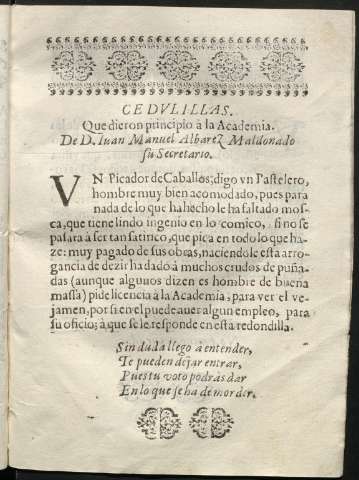 CEDVLILLAS.
Que dieron principio à la Academia.
De D. Iuan Manuel Albarez Maldonado
su Secretario.
VN Picador de Caballos; digo vn Pastelero,
hombre muy bien acomodado, pues para
nada de lo que ha hecho le ha faltado mos-
ca, que tiene lindo ingenio en lo comico, si no se
pasara à ser tan satirico, que pica en todo lo que ha-
ze: muy pagado de sus obras, naciendole esta arro-
gancia de dezir ha dado à muchos crudos de puña-
das (aunque algunos dizen es hombre de buena
massa) pide licencia à la Academia, para ver el ve-
jamen, por si en el puede auer algun empleo, para
su oficio; à que se le responde en esta redondilla.
Sin duda llego à entender,
Te pueden dejar entrar,
Pues tu voto podràs dar
En lo que se ha de morder.